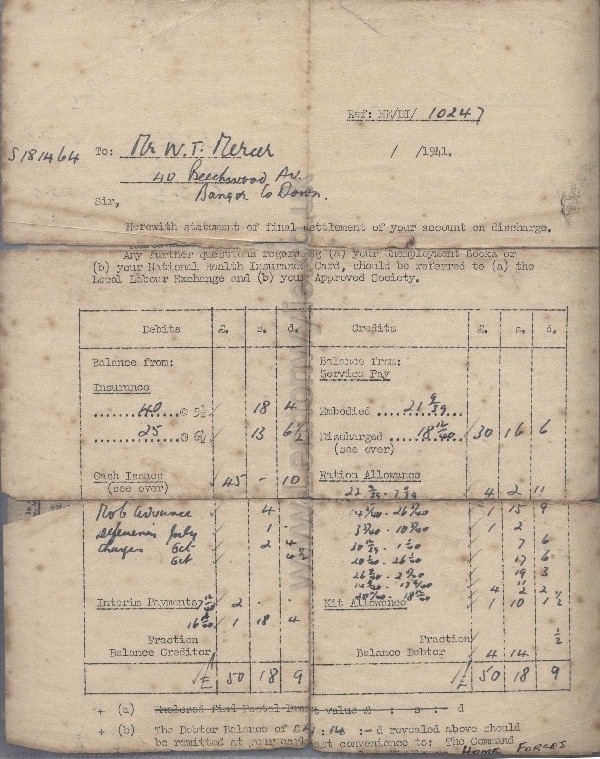 Ref: NE/DI/ 10247
S181464 To: Mr W.T. Mercer
/ /1941.
40 Beechwood Av.
Bangor Co Down.
Sir,
Herewith statement of final settlement of your account on discharge.
Any further questions regarding (a) your Unemployment Books or
(b) your National Health Insurance Card, should be referred to (a) the
Local Labour Exchange and (b) your Approved Society.
Debits £. s. d. Credits £. s. d.
Balance from: Balance from:
Service Pay
Insurance
40 @ 5½ 18 4 Embodied 21 9/39
25 @ 6½ 13 6½ Discharged 18 12/40 30 16 6
(see over)
Cash Issues 45 - 10 Ration Allowance
(see over)
4 2 11
Mob Advance 4 1 15 9
July 1 1 2
Charges Oct 2 4 7 6
Oct 4½ 17 6
19 3
4 2 2
Interim Payments 2 Kit Allowance 1 10 1½
1 18 4
Fraction Fraction ½
Balance Creditor Balance Debtor 4 14
£ 50 18 9 £ 50 18 9
+ (a) Enclosed find Postal Draft value £ : s: d
+ (b) The Debtor Balance of £4 : 14 :- d revealed above should
be remitted at your earliest convenience to: The Command
HOME FORCES